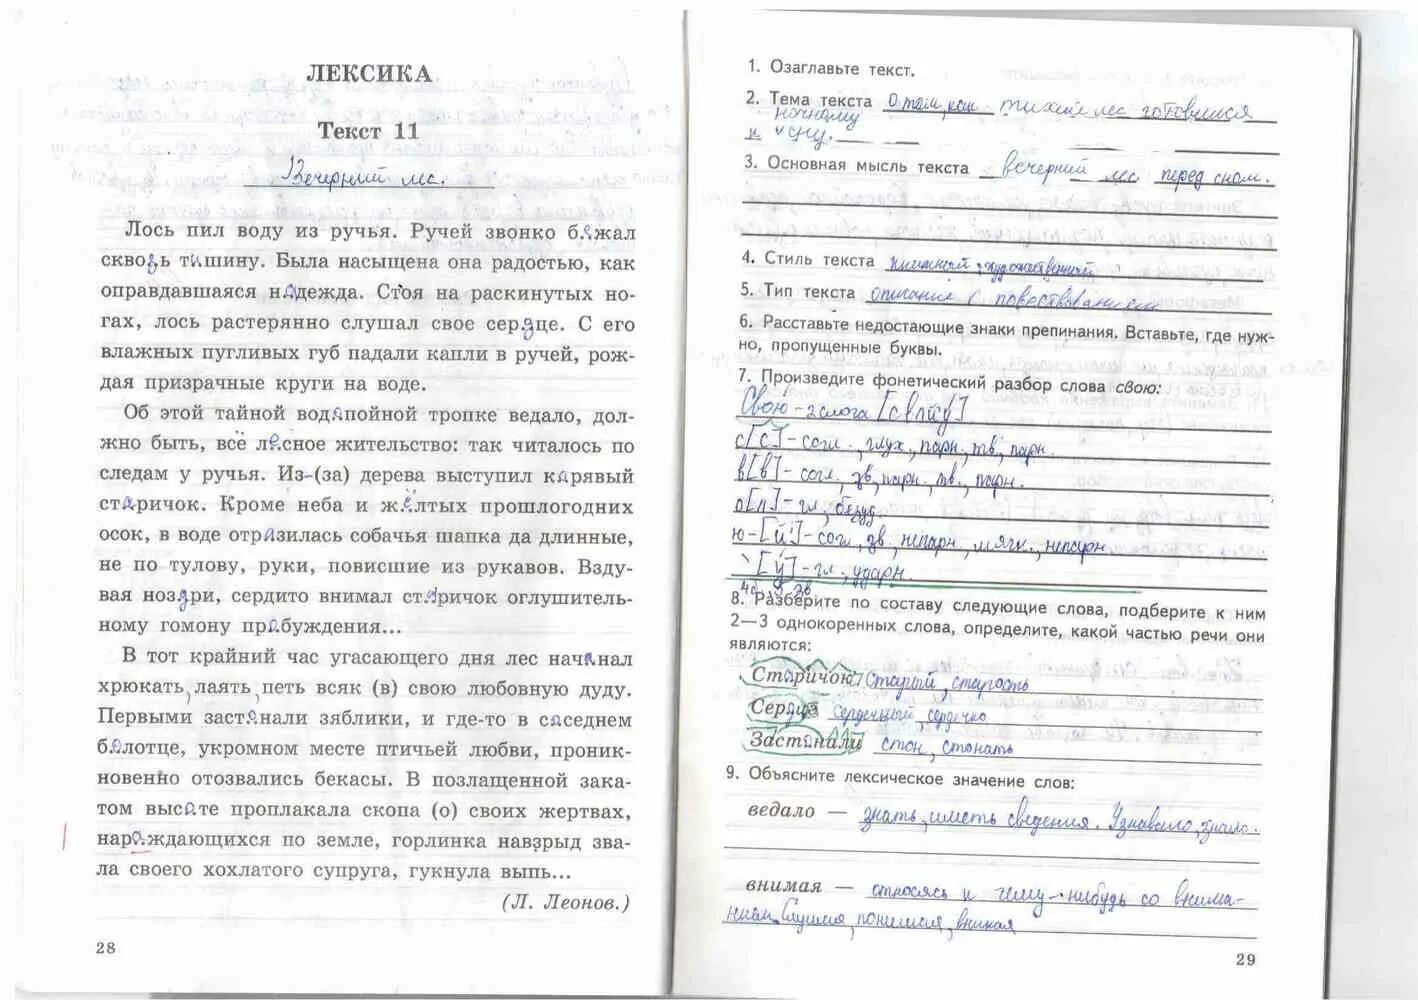 ЛЕКСИКА
Текст 11
Вечерний лес.
Лось пил воду из ручья. Ручей звонко бежал
сквозь тишину. Была насыщена она радостью, как
оправдавшаяся надежда. Стоя на раскинутых но-
гах, лось растерянно слушал свое сердце. С его
влажных пугливых губ падали капли в ручей, рож-
дая призрачные круги на воде.
Об этой тайной водопойной тропке ведало, дол-
жно быть, всё лесное жительство: так читалось по
следам у ручья. Из-(за) дерева выступил корявый
старичок. Кроме неба и жёлтых прошлогодних
осок, в воде отразилась собачья шапка да длинные,
не по тулову, руки, повисшие из рукавов. Взду-
вая ноздри, сердито внимал старичок оглушитель-
ному гомону пробуждения...
В тот крайний час угасающего дня лес начинал
хрюкать, лаять, петь всяк (в) свою любовную дуду.
Первыми застонали зяблики, и где-то в соседнем
болотце, укромном месте птичьей любви, проник-
новенно отозвались бекасы. В позлащенной зака-
том высоте проплакала скопа (о) своих жертвах,
нарождающихся по земле, горлинка навзрыд зва-
ла своего хохлатого супруга, гукнула выпь...
(Л. Леонов.)
28
1. Озаглавьте текст.
2. Тема текста О том, как тихий лес готовился
ночному
к сну.
3. Основная мысль текста вечерний лес перед сном.
4. Стиль текста книжный, художественный
5. Тип текста описание с повествованием
6. Расставьте недостающие знаки препинания. Вставьте, где нуж-
но, пропущенные буквы.
7. Произведите фонетический разбор слова свою:
Свою - 2 слога
с[с] - согл., глух, парн., тв., парн.
в[в] - согл., зв., парн., тв., парн.
о[а] - гл., безуд
ю - [й'] - согл., зв., непарн., мягк., непарн
[у] - гл., ударн.
4б, 5 зв
8. Разберите по составу следующие слова, подберите к ним
2—3 однокоренных слова, определите, какой частью речи они
являются:
Старичок старый, старость
Сердце сердечный, сердечко
Застонали стон, стонать
9. Объясните лексическое значение слов:
ведало — знать, иметь сведения. Узнавало, знало.
внимая — относясь к чему-нибудь со внима-
нием, слушая, понимая, вникая
29